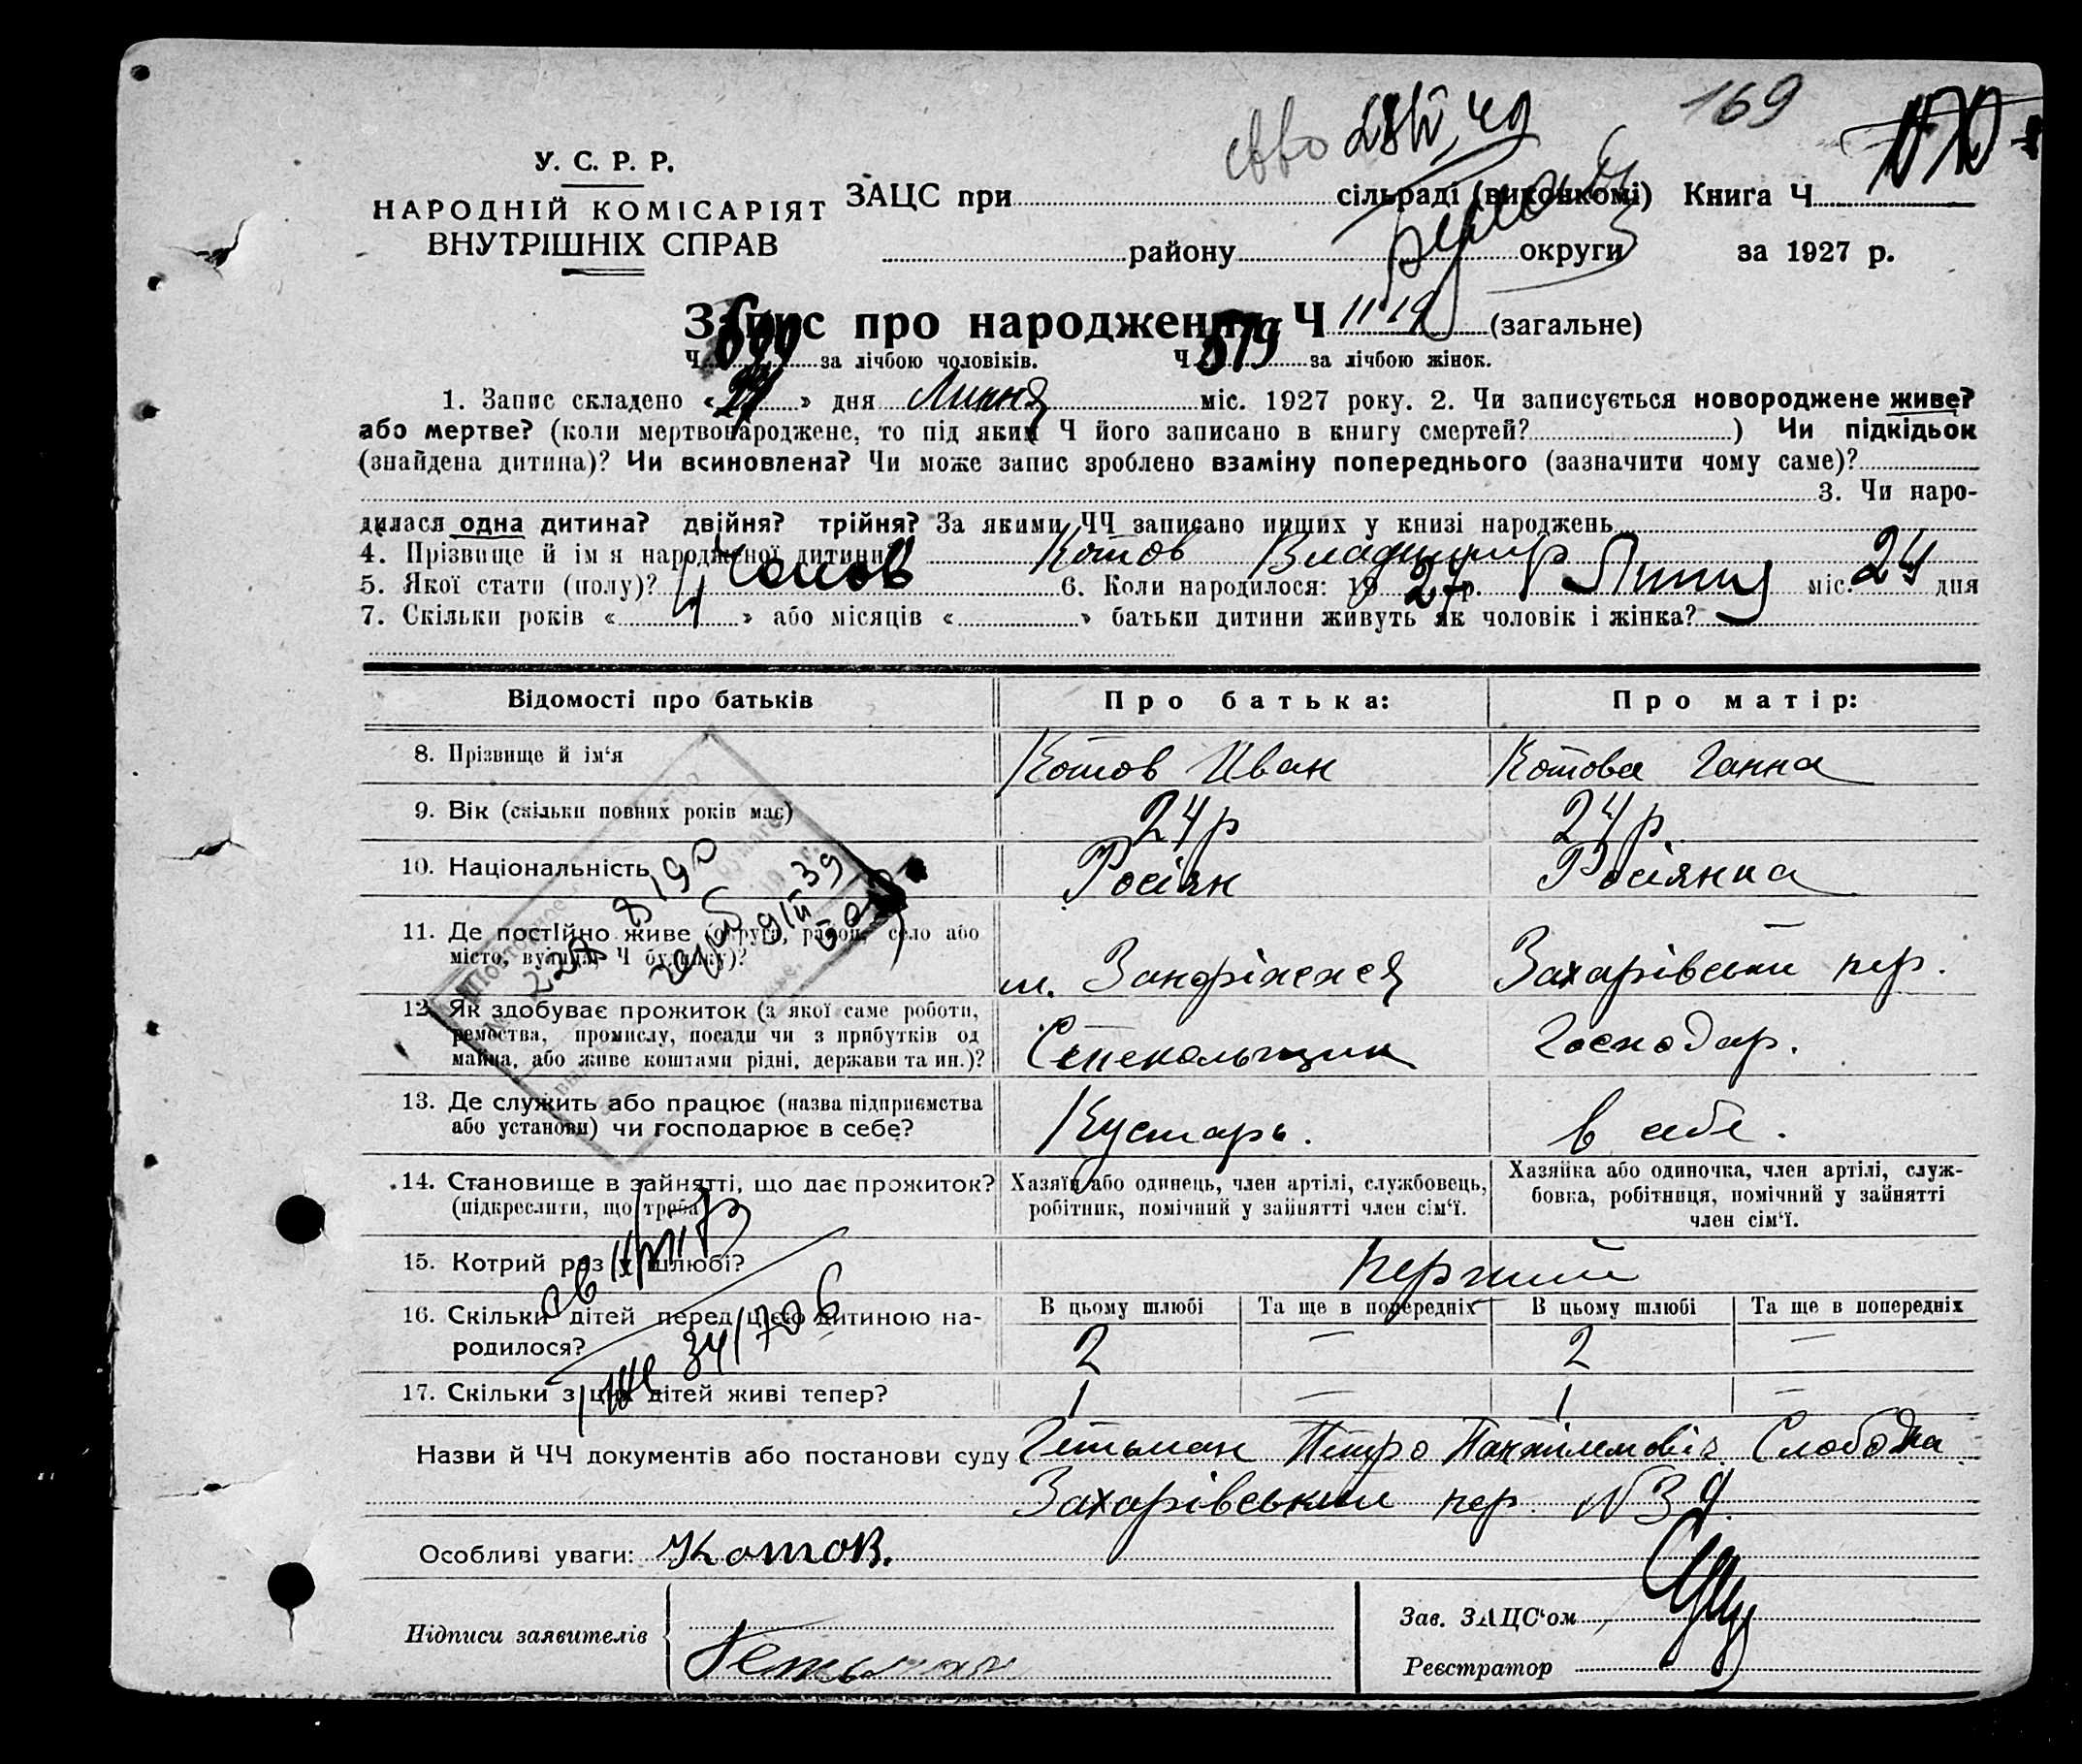 169
У. С. Р. Р.
НАРОДНІЙ КОМІСАРІЯТ
ВНУТРІШНІХ СПРАВ
ЗАЦС при сільраді (виконкомі) Книга Ч
району округи за 1927 р.
Запис про народження Ч 1119 (загальне)
Ч за лічбою чоловіків. Ч 519 за лічбою жінок.
1. Запис складено « » дня Липня міс. 1927 року. 2. Чи записується новороджене живе?
або мертве? (коли мертвонароджене, то під яким Ч його записано в книгу смертей? ) Чи підкідьок
(знайдена дитина)? Чи всиновлена? Чи може запис зроблено взаміну попереднього (зазначити чому саме)?
3. Чи наро-
дилася одна дитина? двійня? трійня? За якими ЧЧ записано инших у книзі народжень
4. Прізвище й ім я народженої дитини Котов Владимир
5. Якої стати (полу)? Чолов 6. Коли народилося: 1927 р. Липня міс. 24 дня
7. Скільки років « 4 » або місяців « » батьки дитини живуть як чоловік і жінка?
Відомості про батьків Про батька: Про матір:
8. Прізвище й ім‘я Котов Иван Котова Ганна
9. Вік (скільки повних років має) 24 р 24 р.
10. Національність Росіян Росіянка
11. Де постійно живе (округа, район, село або
місто, вулиця, Ч будинку)? м. Запоріжжя Захарівський пер.
12. Як здобуває прожиток (з якої саме роботи,
ремества, промислу, посади чи з прибутків од
майна, або живе коштами рідні, держави та ин.)? Стекольщик Господар.
13. Де служить або працює (назва підприємства
або установи) чи господарює в себе? Кустарь. в себе.
14. Становище в зайнятті, що дає прожиток?
(підкреслити, що треба)
Хазяїн або одинець, член артілі, службовець,
робітник, помічний у зайнятті член сім‘ї.
Хазяйка або одиночка, член артілі, служ-
бовка, робітниця, помічний у зайнятті
член сім‘ї.
15. Котрий раз у шлюбі? перший
16. Скільки дітей перед цією дитиною на-
родилося?
В цьому шлюбі Та ще в попередніх В цьому шлюбі Та ще в попередніх
2 — 2 —
17. Скільки з цих дітей живі тепер? 1 — 1 —
Назви й ЧЧ документів або постанови суду Гетьман Петро Пантілимовіч Слободка
Захарівський пер. N 39.
Особливі уваги: Котов.
Підписи заявителів Гетьман
Зав. ЗАЦС‘ом
Реєстратор